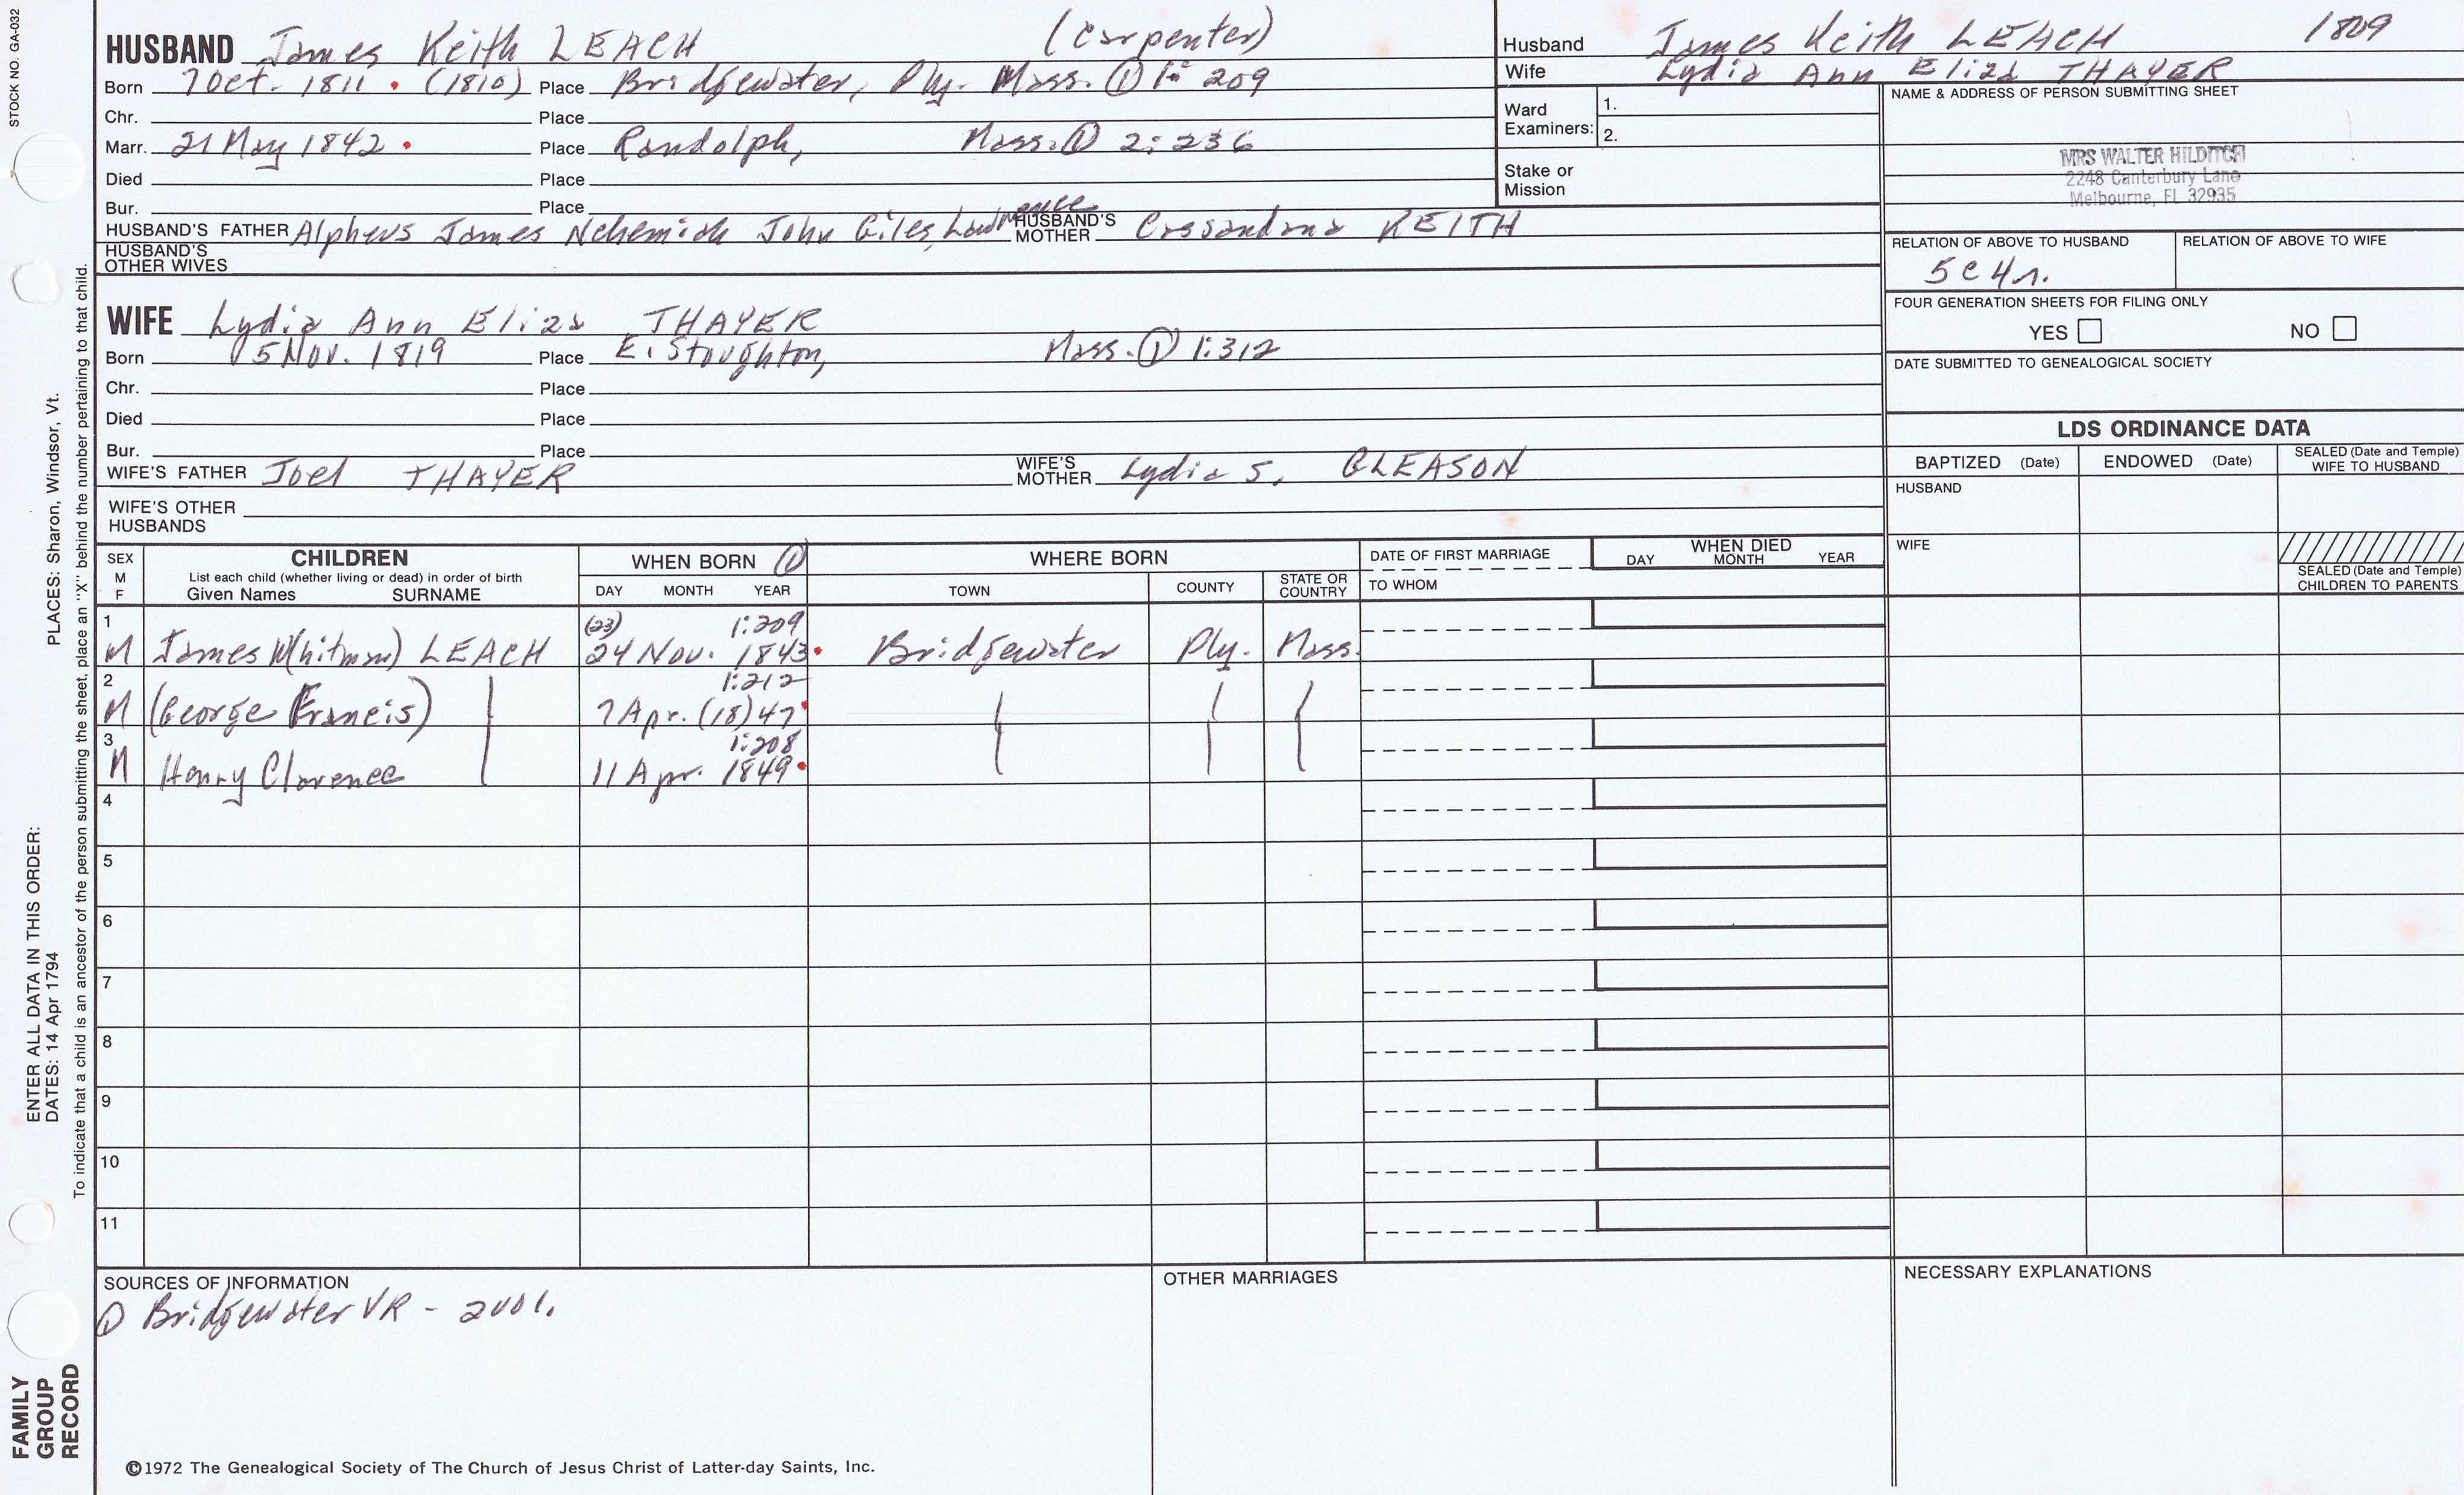 STOCK NO. GA-032
HUSBAND James Keith LEACH (carpenter)
Born 7 Oct. 1811 . (1810) Place Bridgewater, Ply. Mass. ① 1: 209
Chr. Place
Marr. 21 May 1842 . Place Randolph, Mass. ① 2: 236
Died Place
Bur. Place
HUSBAND'S FATHER Alpheus James Nehemiah John Giles, Lawrence HUSBAND'S MOTHER Cassandana KEITH
HUSBAND'S OTHER WIVES
Husband James Keith LEACH 1809
Wife Lydia Ann Eliza THAYER
Ward Examiners: 1.
2.
Stake or Mission
NAME & ADDRESS OF PERSON SUBMITTING SHEET
MRS WALTER HILDITCH
2248 Canterbury Lane
Melbourne, FL 32935
RELATION OF ABOVE TO HUSBAND RELATION OF ABOVE TO WIFE
5c4r.
FOUR GENERATION SHEETS FOR FILING ONLY
YES NO
DATE SUBMITTED TO GENEALOGICAL SOCIETY
WIFE Lydia Ann Eliza THAYER
Born 5 Nov. 1819 Place E. Stoughton, Mass. ① 1:312
Chr. Place
Died Place
Bur. Place
WIFE'S FATHER Joel THAYER WIFE'S MOTHER Lydia S. GLEASON
WIFE'S OTHER HUSBANDS
LDS ORDINANCE DATA
BAPTIZED (Date) ENDOWED (Date) SEALED (Date and Temple) WIFE TO HUSBAND
HUSBAND
WIFE
SEALED (Date and Temple) CHILDREN TO PARENTS
SEX M F CHILDREN WHEN BORN ① WHERE BORN DATE OF FIRST MARRIAGE WHEN DIED
List each child (whether living or dead) in order of birth
Given Names SURNAME DAY MONTH YEAR TOWN COUNTY STATE OR COUNTRY TO WHOM DAY MONTH YEAR
1 (23) 1:209
M James W(hitman) LEACH 24 Nov. 1843 . Bridgewater Ply. Mass.
2 1:212
M (George Francis) 7 Apr. (18)47
3 1:208
M Henry Clarence 11 Apr. 1849 .
4
5
6
7
8
9
10
11
SOURCES OF INFORMATION
① Bridgewater VR - 2vol.
OTHER MARRIAGES
NECESSARY EXPLANATIONS
©1972 The Genealogical Society of The Church of Jesus Christ of Latter-day Saints, Inc.
FAMILY GROUP RECORD
ENTER ALL DATA IN THIS ORDER:
DATES: 14 Apr 1794 PLACES: Sharon, Windsor, Vt.
To indicate that a child is an ancestor of the person submitting the sheet, place an "X" behind the number pertaining to that child.